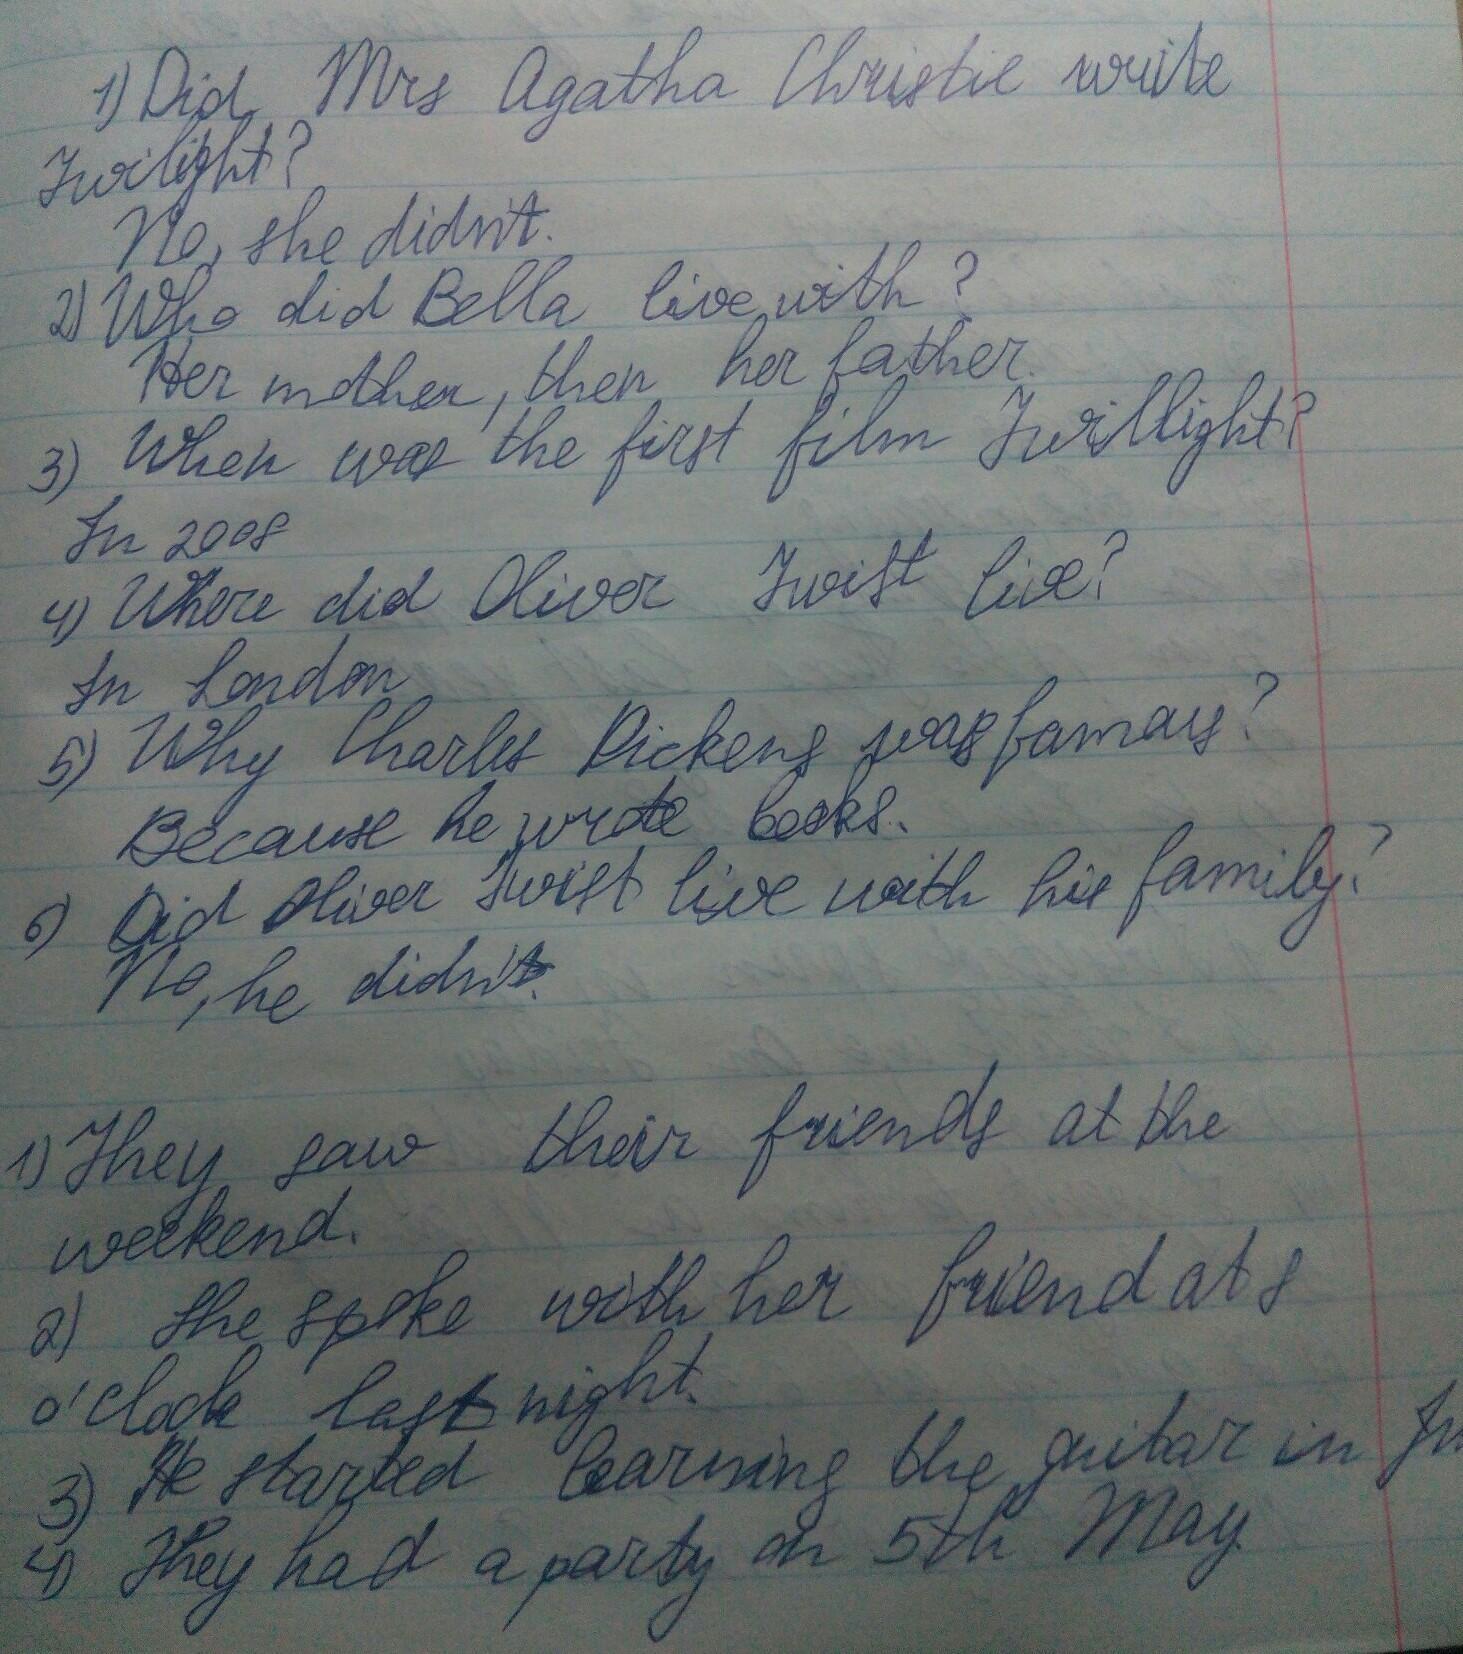 1) Did Mrs Agatha Christie write
Twilight?
No, she didn't.
2) Who did Bella live with?
Her mother, then her father.
3) When was the first film Twillight?
In 2008
4) Where did Oliver Twist live?
In London
5) Why Charles Dickens was famous?
Because he wrote books.
6) Did Oliver Twist live with his family?
No, he didn't.
1) They saw their friends at the
weekend.
2) She spoke with her friend at 8
o'clock last night.
3) He started learning the guitar in
4) They had a party on 5th May.